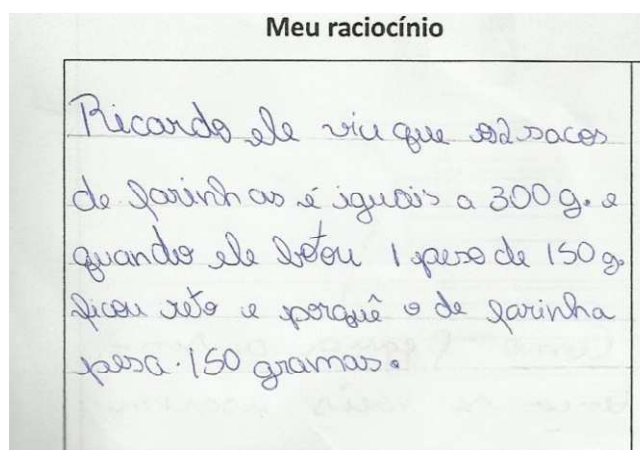 Meu raciocínio
Ricardo ele viu que 02 sacos
de farinhas é iguais a 300 g. e
quando ele botou 1 peso de 150 g.
ficou reto e porquê o de farinha
pesa. 150 gramas.